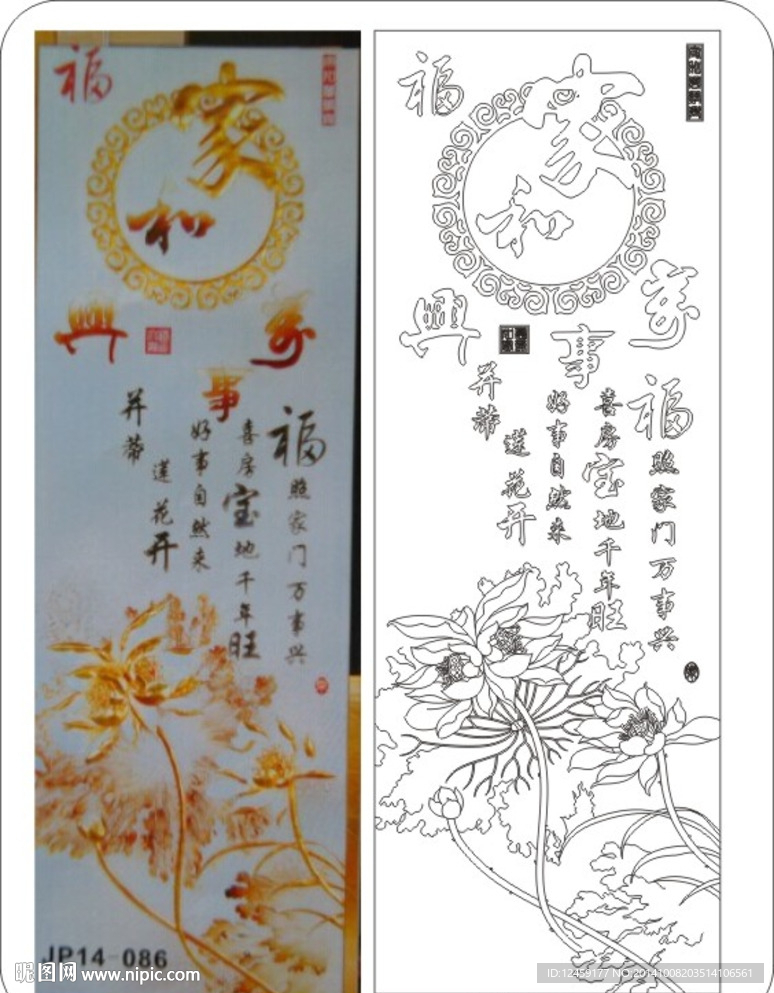 福
家
和
萬
事
興
福照家门万事兴
喜房宝地千年旺
好事自然来
并蒂
莲花开
JP14-086
福
家
和
萬
事
興
福照家门万事兴
喜房宝地千年旺
好事自然来
并蒂
莲花开
昵图网 www.nipic.com
ID:12459177 NO:20141008203514106561